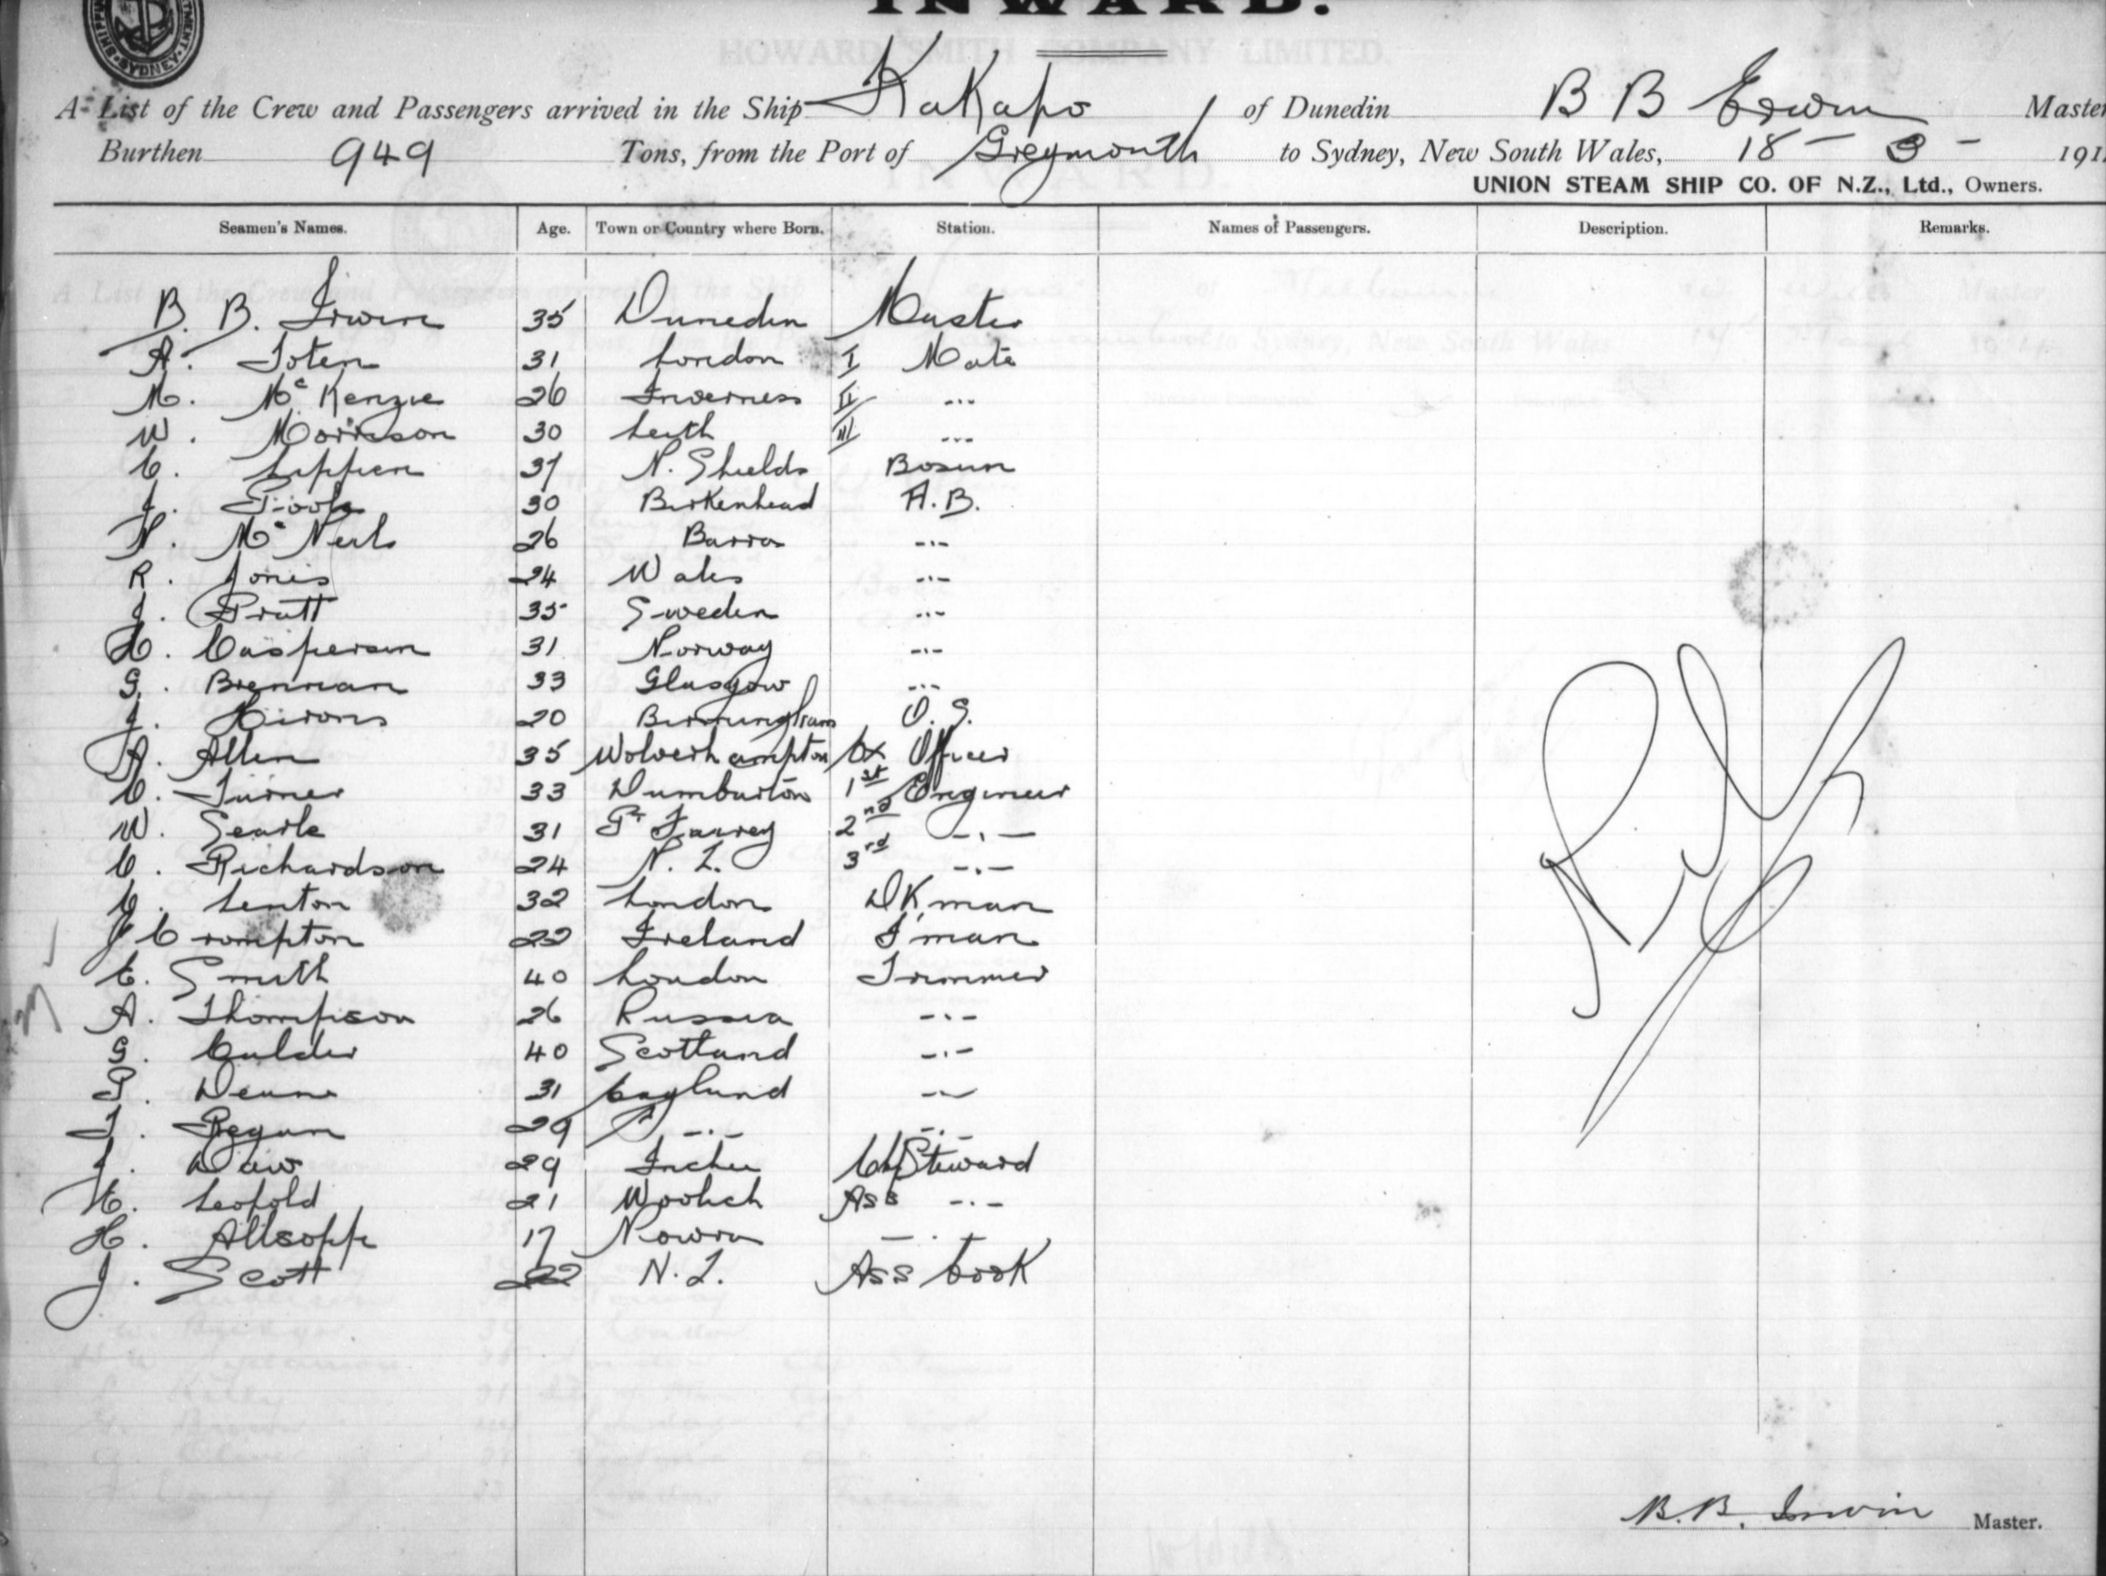 INWARD.
A List of the Crew and Passengers arrived in the Ship Kakapo of Dunedin B B Erwin Master
Burthen 949 Tons, from the Port of Greymouth to Sydney, New South Wales, 18 - 3 - 191
UNION STEAM SHIP CO. OF N.Z., Ltd., Owners.
Seamen's Names. Age. Town or Country where Born. Station. Names of Passengers. Description. Remarks.
B. B. Irwin 35 Dunedin Master
A. Toten 31 London I Mate
M. McKenzie 26 Inverness II -·-
W. Morrison 30 Leith III -·-
C. Lippen 37 N. Shields Bosun
J. Poole 30 Birkenhead A.B.
N. McNeil 26 Barra -·-
R. Jones 24 Wales -·-
J. Pratt 35 Sweden -·-
Casperson 31 Norway -·-
G. Brennan 33 Glasgow -·-
J. Hirons 20 Birmingham O.S.
A. Allen 35 Wolverhampton Ex Officer
C. Turner 33 Dumbarton 1st Engineer
W. Searle 31 2nd -·-
C. Richardson 24 N.Z. 3rd -·-
Lenton 32 London DKman
J Crompton 22 Ireland F'man
E. Smith 40 London Trimmer
A. Thompson 26 Russia -·-
G. Calder 40 Scotland -·-
P. Deane 31 England -·-
T. Regan 29 -·- -·-
J. Daw 29 Ch Steward
E. Leopold 21 Woolwich Ass -·-
H. Allsopp 17 Nowra -·-
J. Scott 22 N.Z. Ass Cook
B. B. Irwin Master.